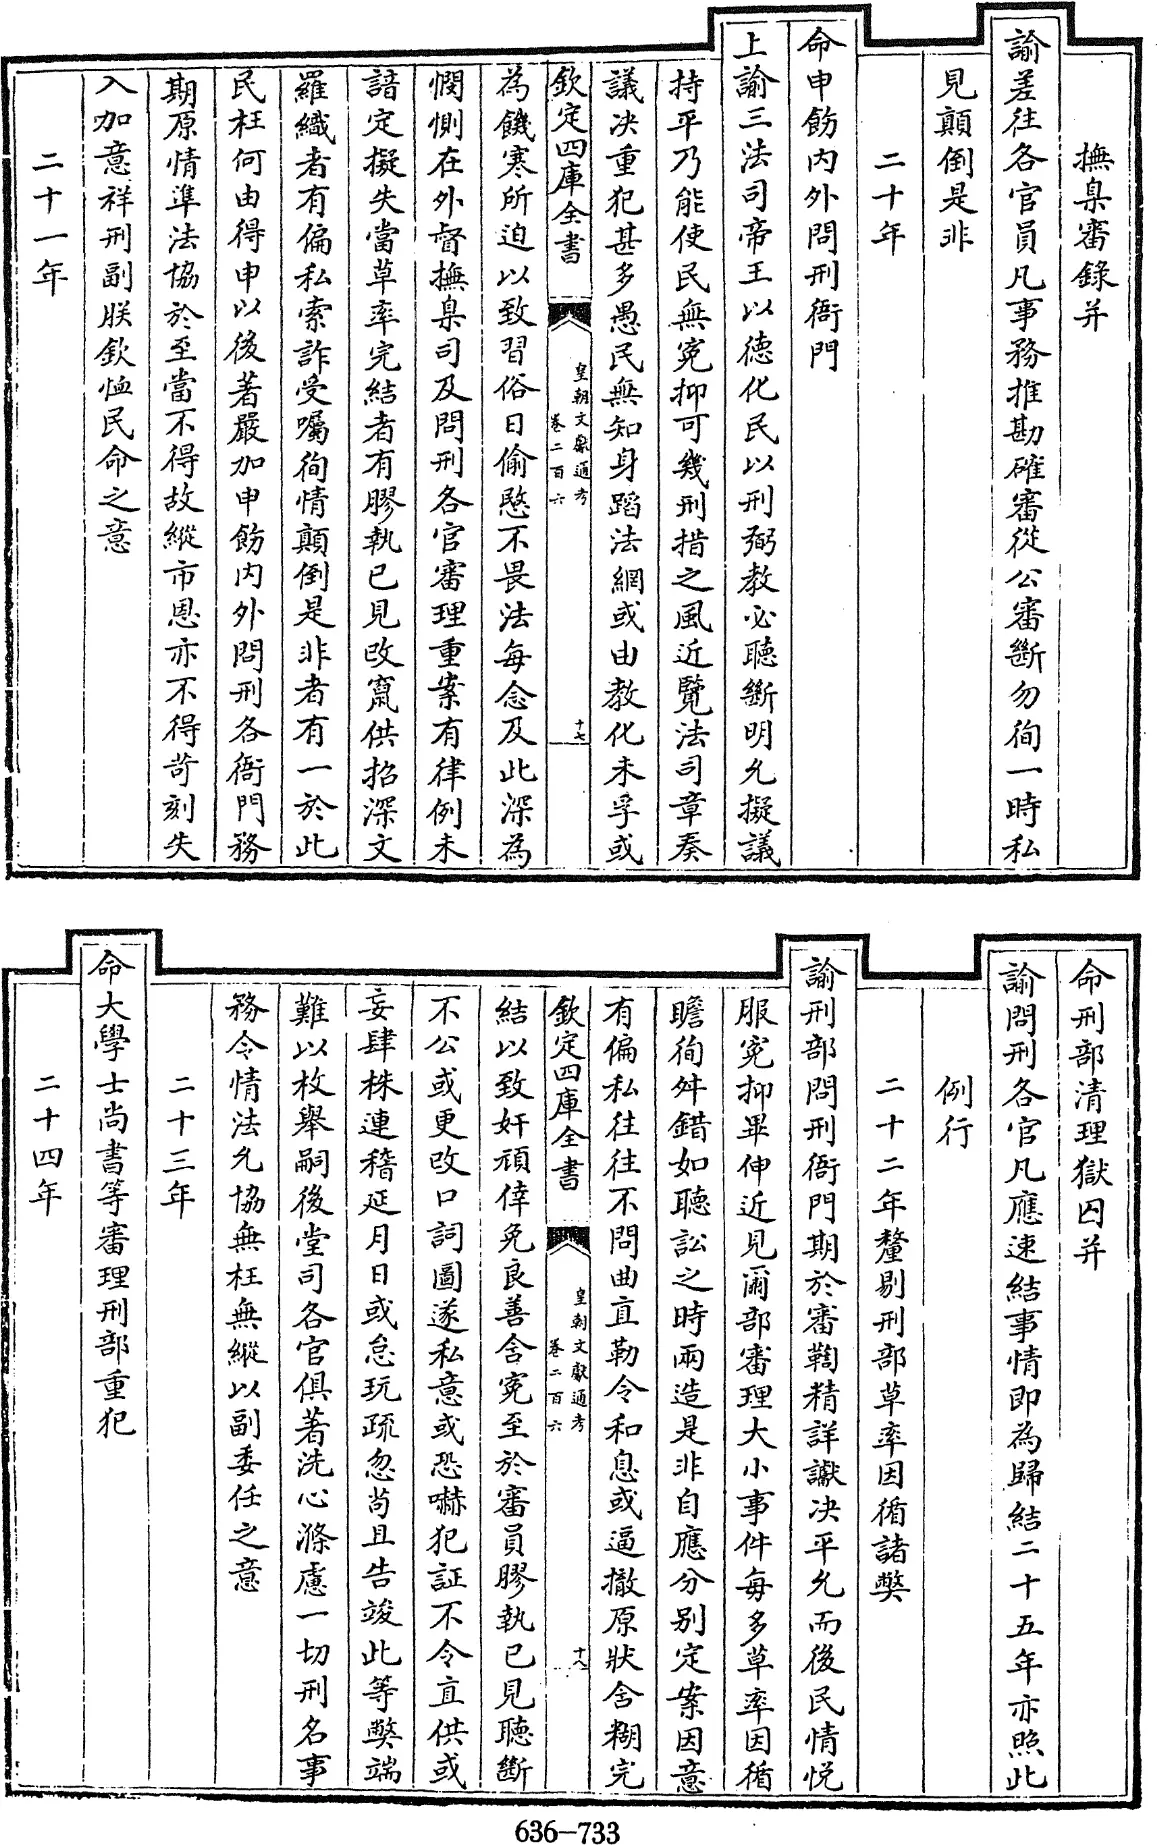 撫臬審錄并
諭差往各官員凡事務推勘確審從公審斷勿徇一時私
見顛倒是非
二十年
命申飭內外問刑衙門
上諭三法司帝王以德化民以刑弼教必聽斷明允擬議
持平乃能使民無冤抑可幾刑措之風近覽法司章奏
議决重犯甚多愚民無知身蹈法網或由教化未孚或
欽定四庫全書
皇朝文獻通考
卷二百六
十七
為饑寒所迫以致習俗日偷愍不畏法每念及此深為
憫惻在外督撫臬司及問刑各官審理重案有律例未
諳定擬失當草率完結者有膠執已見改竄供招深文
羅織者有偏私索詐受囑徇情顛倒是非者有一於此
民枉何由得申以後著嚴加申飭內外問刑各衙門務
期原情準法協於至當不得故縱市恩亦不得苛刻失
入加意祥刑副朕欽恤民命之意
二十一年
命刑部清理獄囚并
諭問刑各官凡應速結事情即為歸結二十五年亦照此
例行
二十二年釐剔刑部草率因循諸弊
諭刑部問刑衙門期於審鞫精詳讞决平允而後民情悅
服冤抑畢伸近見爾部審理大小事件每多草率因循
瞻徇舛錯如聽訟之時兩造是非自應分别定案因意
有偏私往往不問曲直勒令和息或逼撤原狀含糊完
欽定四庫全書
皇朝文獻通考
卷二百六
十八
結以致奸頑倖免良善含冤至於審員膠執已見聽斷
不公或更改口詞圖遂私意或恐嚇犯証不令直供或
妄肆株連稽延月日或怠玩疏忽茍且告竣此等弊端
難以枚舉嗣後堂司各官俱著洗心滌慮一切刑名事
務令情法允協無枉無縱以副委任之意
二十三年
命大學士尚書等審理刑部重犯
二十四年
636—733